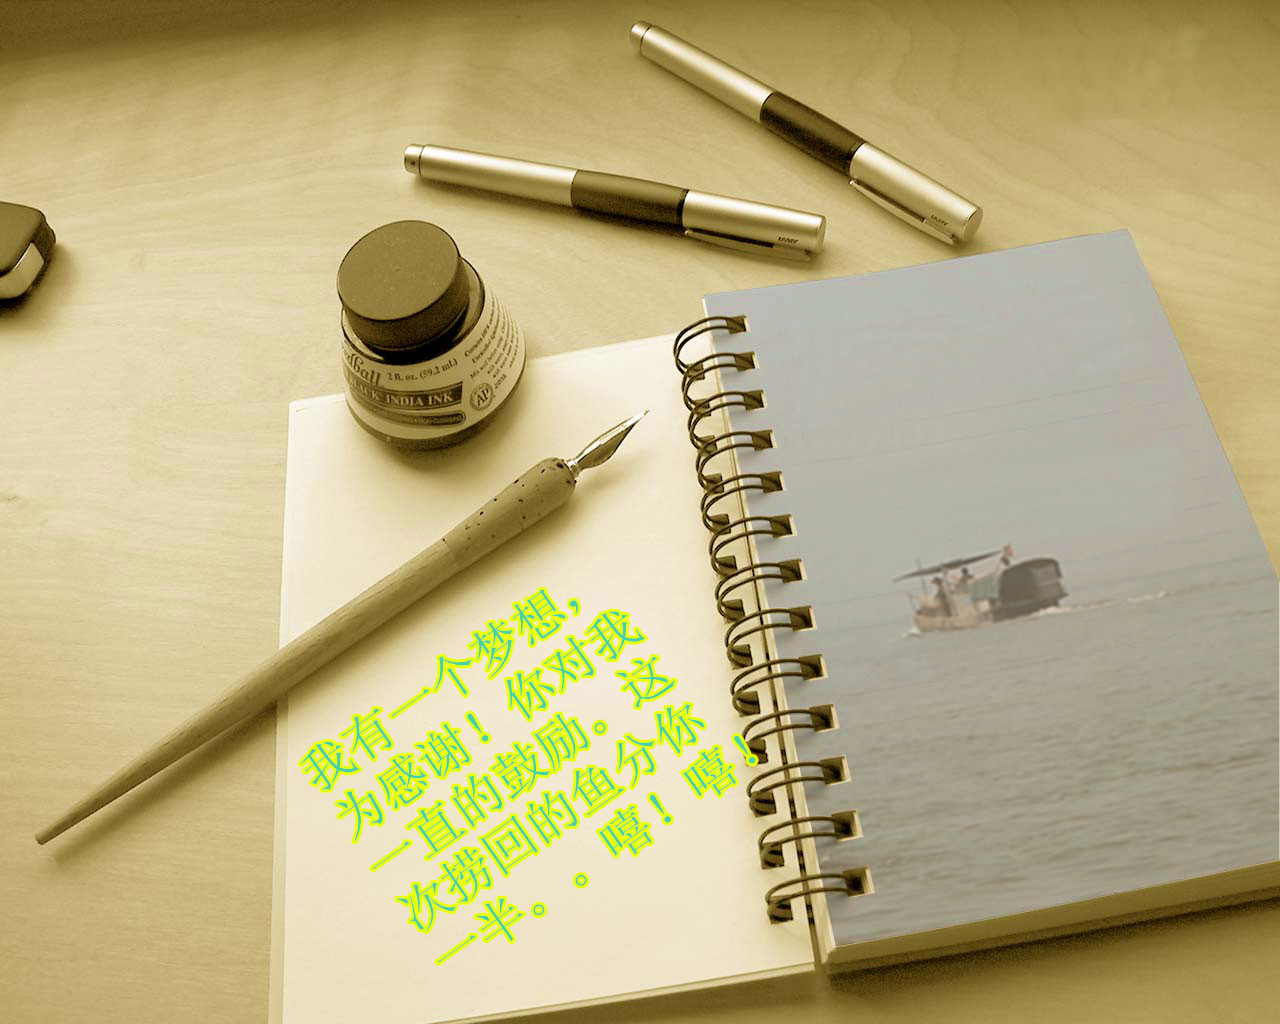 LAMY
LAMY
2 fl. oz. (59.2 ml.)
BLACK INDIA INK
AP
我有一个梦想，
为感谢！你对我
一直的鼓励。这
次捞回的鱼分你
一半。。嘻！嘻！